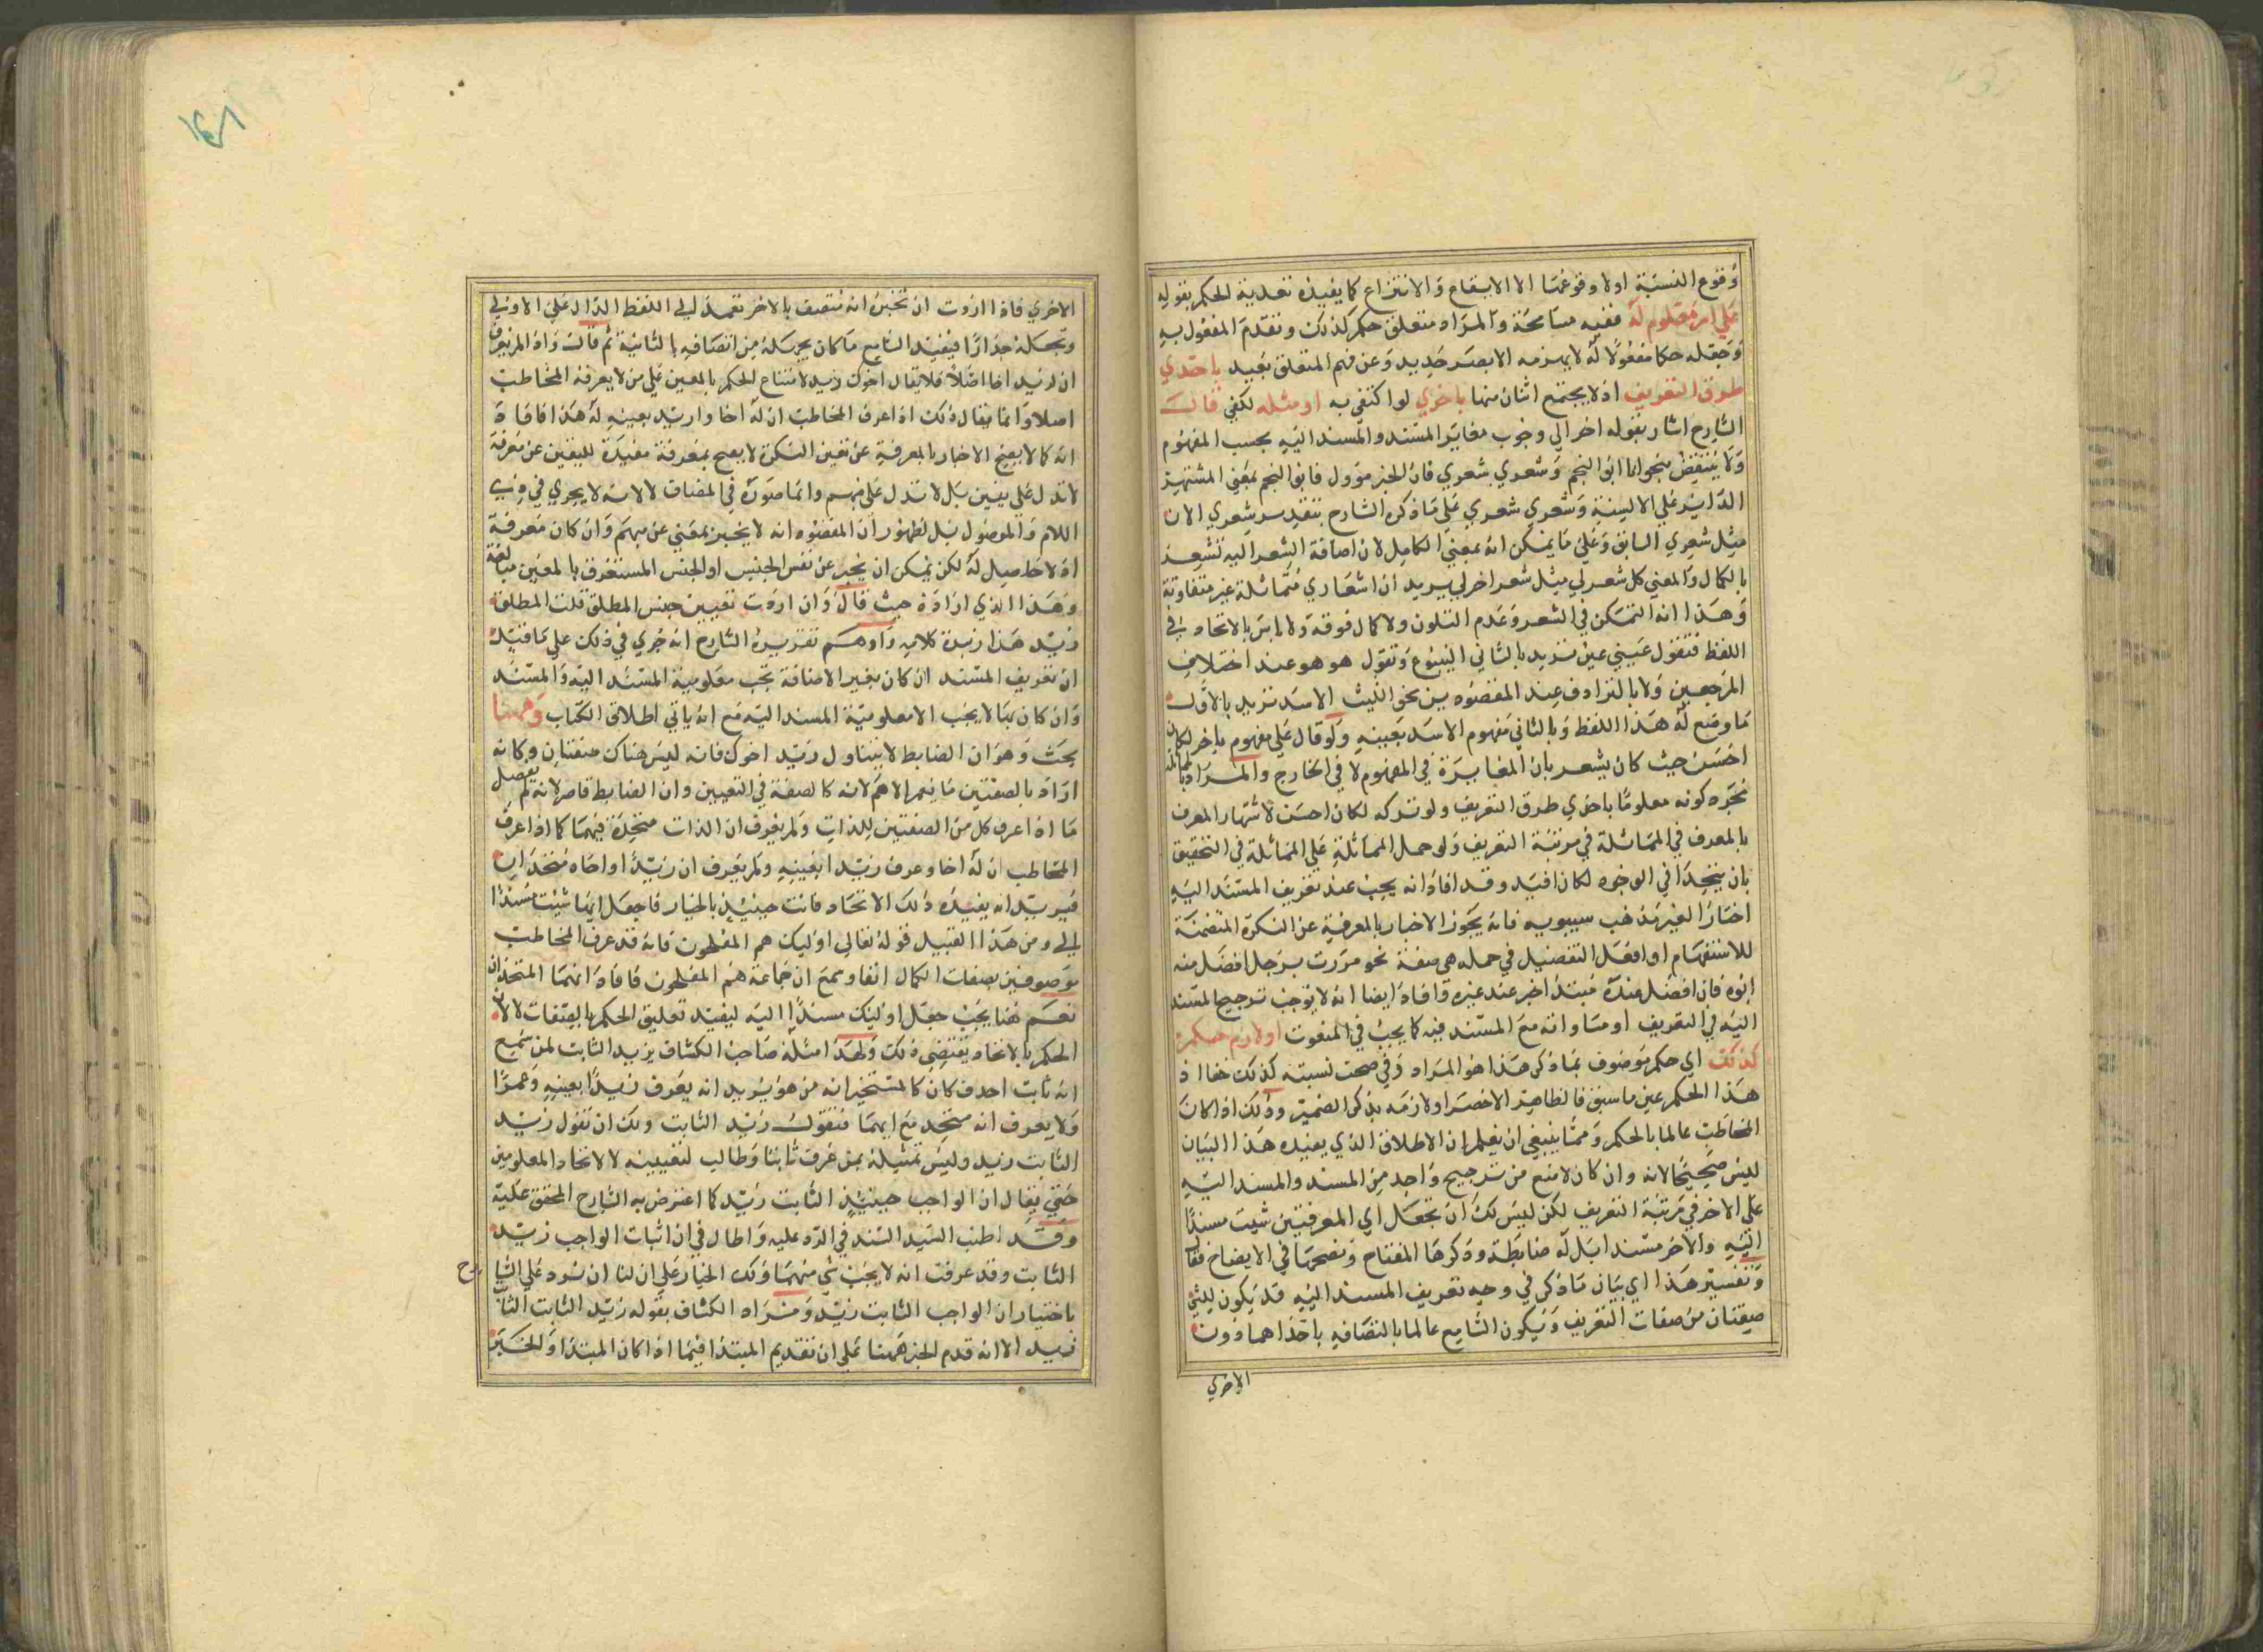 وقوع النسبة اولا وقوعها الا الايقاع والانتزاع كما يفيده تعدية الحكم بقوله
علي امر معلوم له ففيه مسامحة والمراد متعلق حكم كذلك وتقدم المفعول به
وجعله حكما مفعولا له لا يهزمه الا بصر حديد وعن فهم المتعلق بعيد باحدي
طرق التعريف اذ لا يجتمع اثنان منها باخري لو اكتفي به او مثله لكفي قال
الشارح اشار بقوله اخر الي وجوب مغاير المسند والمسند اليه بحسب المفهوم
ولا ينتقض بنحو انا ابو النجم وشعري شعري فان الخبر مؤول فابو النجم بمعني المشتهر
الداير علي الالسنة وشعري شعري علي ما ذكره الشارح بتقدير شعري الان
مثل شعري السابق وعلي ما يمكن انه بمعني الكامل لان اضافة الشعر اليه تشعر
بالكمال والمعني كل شعر لي مثل شعر اخر لي يريد ان اشعاري متماثلة غير متفاوتة
وهذا انه التمكن في الشعر وعدم التلون ولا كمال فوقه ولا باس بالاتحاد في
اللفظ فتقول عيني عين تريد بالثاني الينبوع وتقول هو هو عند اختلاف
المرجعين ولا بالترادف عند المقصودين نحو الليث الاسد تريد بالاول
ما وضع له هذا اللفظ وبالثاني مفهوم الاسد بعينه ولو قال علي مفهوم باخر لكان
احسن حيث كان يشعر بان المغايرة في المفهوم لا في الخارج والمراد بالمماثلة
مجرد كونه معلوما باحدي طرق التعريف ولو تركه لكان احسن لاشتهار المعرف
بالمعرف في المماثلة في مرتبة التعريف ولو حمل المماثلة علي المماثلة في التحقيق
بان يتحدا في الوجوه لكان افيد وقد افاد انه يجب عند تعريف المسند اليه
اختار الغير مذهب سيبويه فانه يجوز الاخبار بالمعرفة عن النكرة المتضمنة
للاستفهام او افعل التفضيل في جملة هي صفة نحو مررت برجل افضل منه
ابوه فان افضل عنده مبتدا خبر عند غيره وافاد ايضا انه لا يوجب ترجيح المسند
اليه في التعريف او مساواته مع المسند فيه كما يجب في المنعوت او لازم حكم
كذلك اي حكم موصوف بما ذكر هذا هو المراد وفي صحت نسبته كذلك خفا اذ
هذا الحكم عين ما سبق فالظاهر الاخصر او لازمه بذكر الضمير وذلك اذا كان
المخاطب عالما بالحكم ومما ينبغي ان يعلم ان الاطلاق الذي يفيده هذا البيان
ليس صحيحا لانه وان كان لا منع من ترجيح واحد من المسند والمسند اليه
علي الاخر في مرتبة التعريف لكن ليس لك ان تجعل اي المعرفتين شيت مسندا
اليه والاخر مسندا بل له ضابطة وذكرها المفتاح وتصحيحها في الايضاح فقال
وتفسير هذا اي بيان ما ذكر في وجه تعريف المسند اليه قد يكون للشي
صفتان من صفات التعريف ويكون السامع عالما باتصافه باحداهما دون
الاخري
الاخري فاذا اردت ان تخبره انه متصف بالاخر تعمد الي اللفظ الدال علي الاولي
وتجعله جدارا فيفيد السامع ما كان يجهله من اتصافه بالثانية ثم قال واذا لم يعرف
ان لزيد اخا اصلا فلا يقال اخوك زيد لامتناع الحكم بالمعين علي من لا يعرفه المخاطب
اصلا وانما يقال ذلك اذا عرف المخاطب ان له اخا واريد بعينه له هذا افاد
انه كما لا يصح الاخبار بالمعرفة عن تعين النكرة لا يصح بمعرفة مفيدة لليقين عن معرفة
لا تدل علي يقين بل لا تدل علي مبهم وانما صوره في المضاف لا لانه لا يجري في ذي
اللام والموصول بل لظهور ان المقصود انه لا يخبر بمعني عن مبهم وان كان معرفة
اذ لا حاصل له لكن يمكن ان يخبر عن نفس الجنس او الجنس المستغرق بالمعين مبالغة
وهذا الذي اراده حيث قال وان اردت تعيين جنس المطلق قلت المطلق
زيد هذا زبدة كلامه واوهم تقريره الشارح انه جري في ذلك علي ما قيل
ان تعريف المسند ان كان بغير الاضافة تجب معلومية المسند اليه والمسند
وان كان بها لا يجب الا معلومية المسند اليه مع انه ياتي اطلاق الكتاب وههنا
بحث وهو ان الضابط لا يتناول زيد اخوك فانه ليس هناك صفتان وكانه
اراد بالصفتين ما يعم الاهم لانه كالصفة في التعيين وان الضابط قاصر لانه لم يفصل
ما اذا عرف كل من الصفتين للذات ولم يعرف ان الذات متحدة فيهما كما اذا عرف
المخاطب ان له اخا وعرف زيدا بعينه ولم يعرف ان زيدا واخاه متحدان
فيريد ان يفيده ذلك الاتحاد فانت حينئذ بالخيار فاجعل ايهما شئت مسندا
الي ومن هذا القبيل قوله تعالي اوليك هم المفلحون فانه قد عرف المخاطب
موصوفين بصفات الكمال انفا وسمع ان جماعة هم المفلحون فافاد انهما المتحدان
نعم هنا يجب جعل اوليك مسندا اليه ليفيد تعليق الحكم بالصفات لا لان
الحكم بالاتحاد يقتضي ذلك ولهذا مثله صاحب الكشاف بزيد الثابت لمن سمع
انه ثابت احد فكان كالمستخبر انه من هو يريد انه يعرف زيدا بعينه وعمرا
ولا يعرف انه متحد مع ايهما فتقول زيد الثابت ولك ان تقول زيد
الثابت زيد وليس تمثيله بمن عرف ثابتا وطالب لتعيينه لا لاتحاد المعلومين
حتي يقال ان الواجب حينئذ الثابت زيد كما اعترض به الشارح المحقق عليه
وقد اطنب السيد السند في الرد عليه واطال في ان اثبات الواجب زيد
الثابت وقد عرفت انه لا يجب شي منهما ولك الخيار علي ان لنا ان نرد علي الشارح
باختيار ان الواجب الثابت زيد ومراد الكشاف بقوله زيد الثابت الثابت
زيد الا انه قدم الخبر ههنا علي ان تقديم المبتدا فيما اذا كان المبتدا والخبر